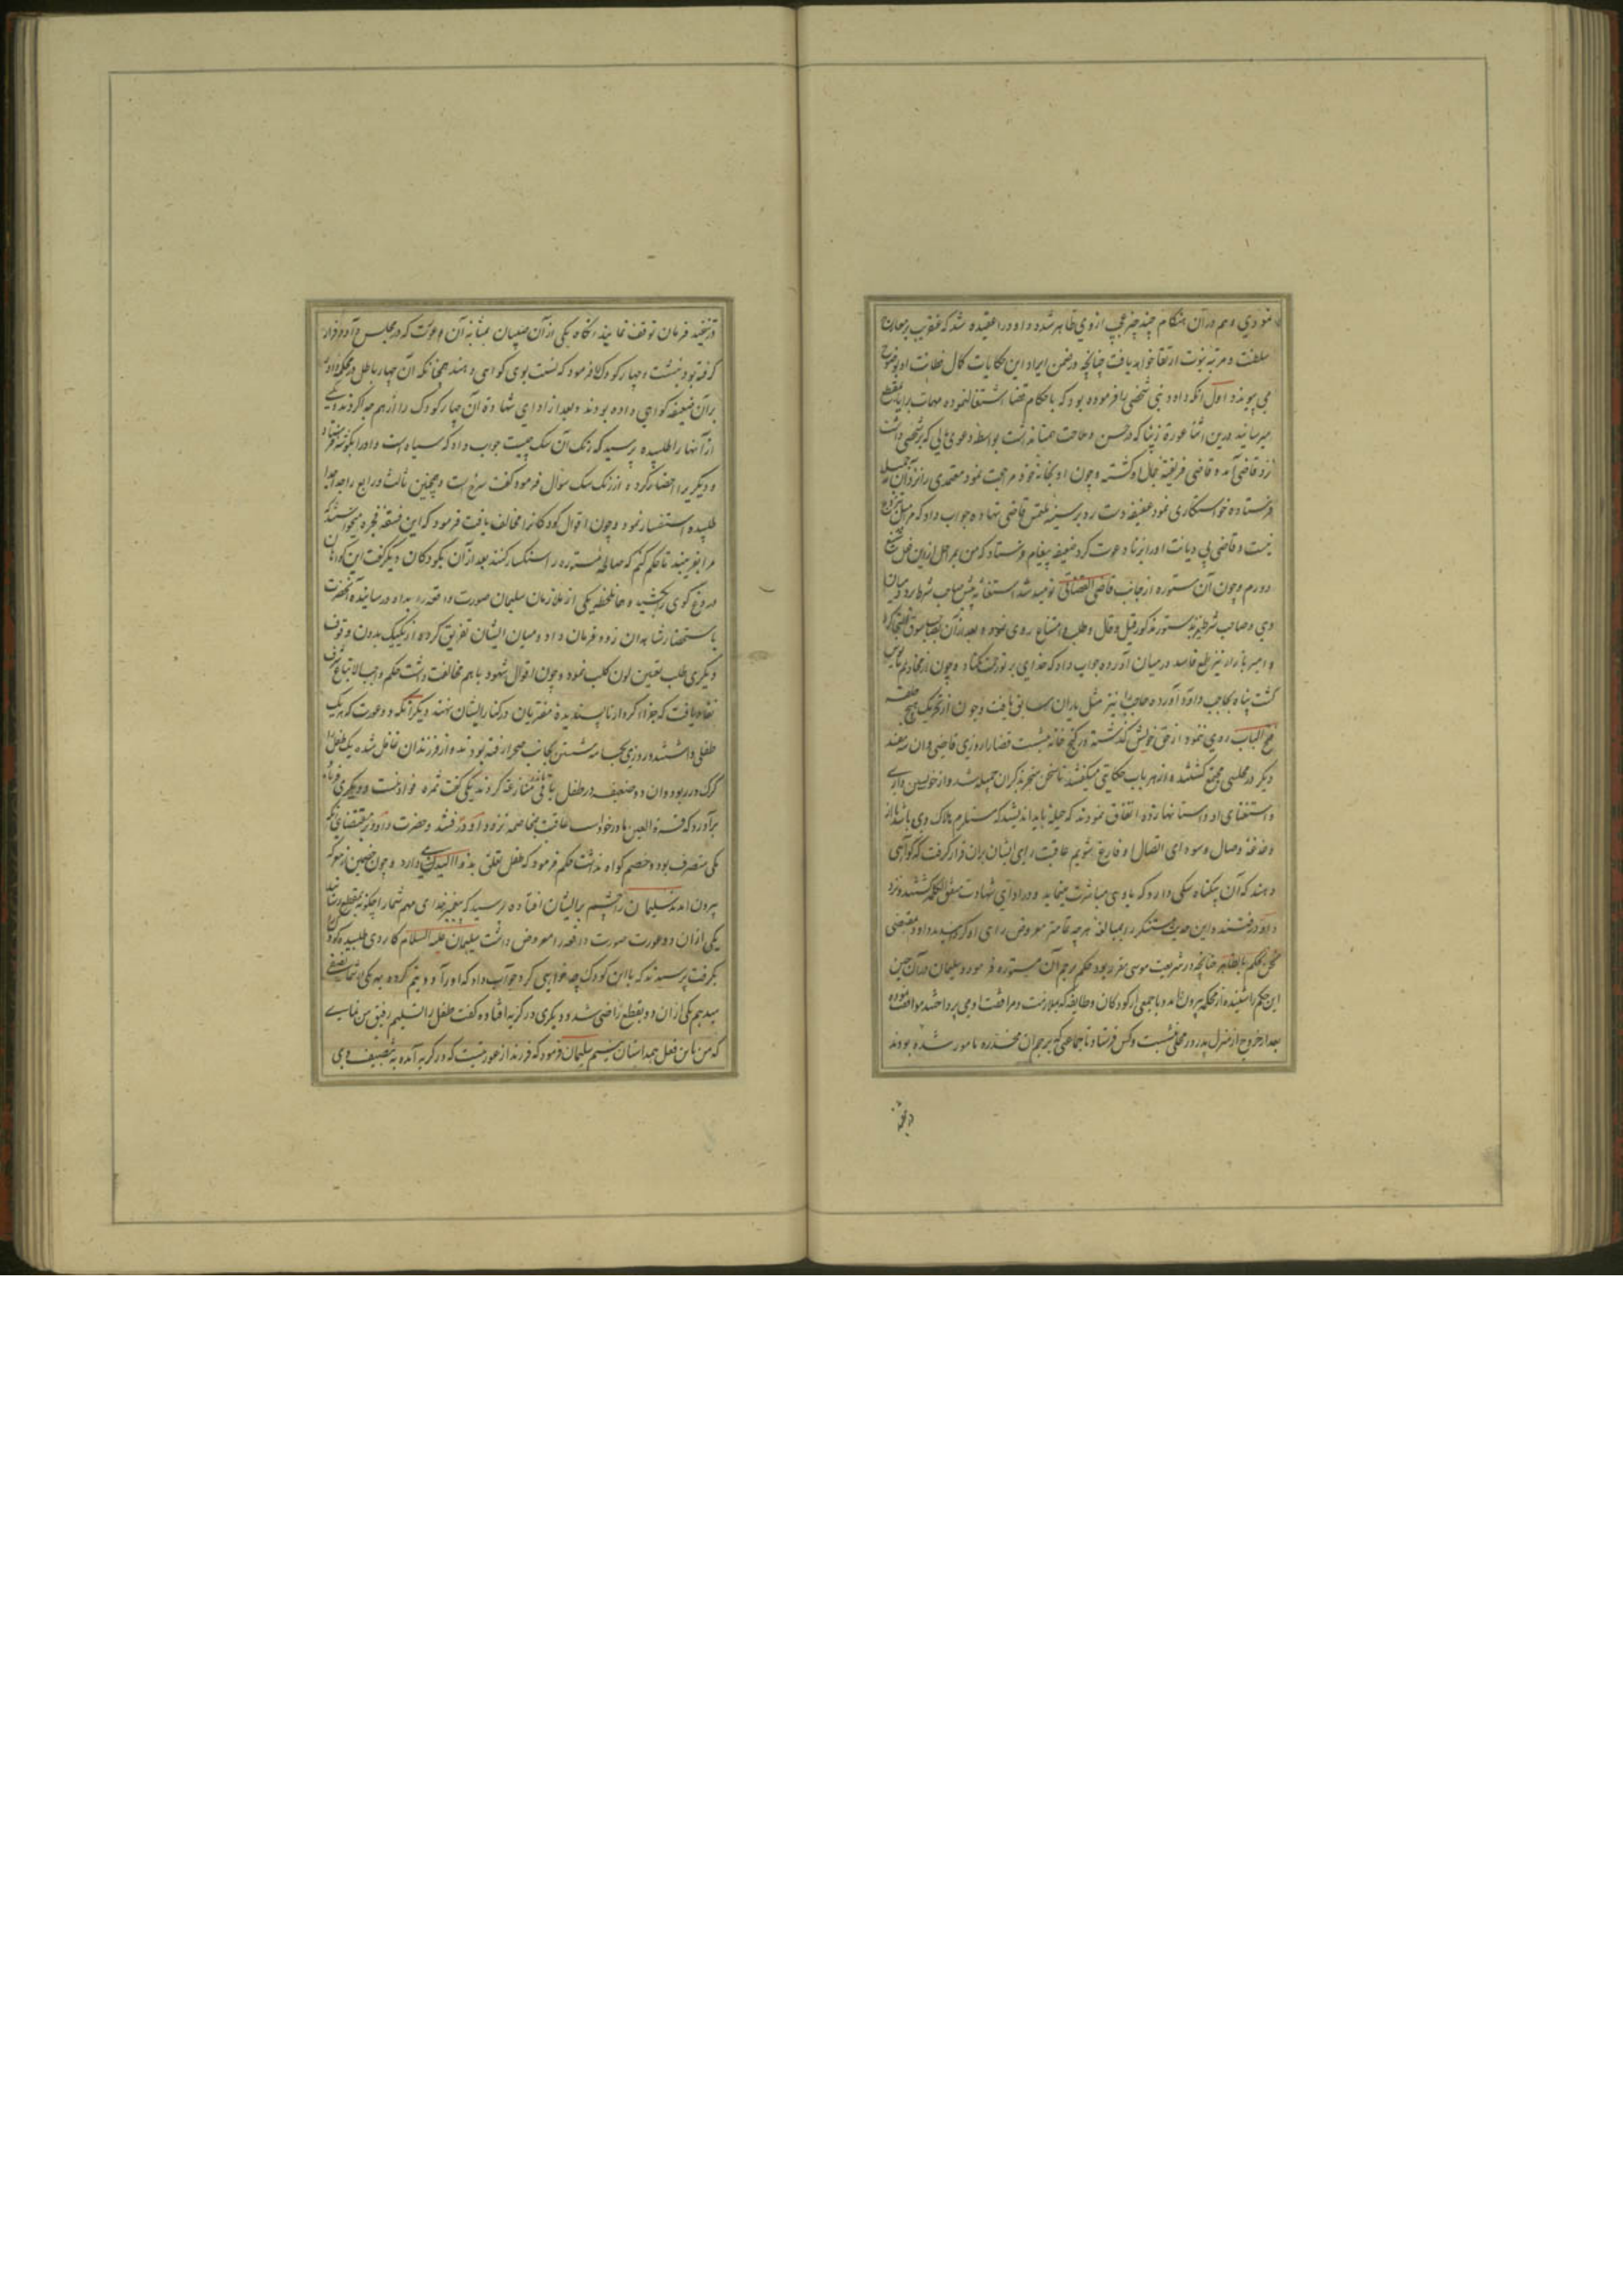 نمودی و هم در آن هنگام چند چیز عجیب از وی ظاهر شده داود را عقیده شد که عنقریب بر معارج
سلطنت و مرتبه نبوت ارتقا خواهد یافت چنانچه در ضمن ایراد این حکایات کمال فطانت او بوضوح
می پیوندد اول آنکه داود نبی شخصی را فرموده بود که باحکام قضا اشتغال نموده مهمات برایا بمقطع
میرسانید درین اثنا عورة زیبا که در حسن و ملاحت همتا نداشت بواسطه دعوی که بر شخصی داشت
نزد قاضی آمد و قاضی فریفته جمال او گشته و چون او بخانه خود مراجعت نمود معتمدی را نزد آن جمیله
فرستاده خواستگاری نمود عفیفه دست رد بر سینه ملتمس قاضی نهاده جواب داد که مرا میل تزوج
نیست و قاضی بی دیانت او را بزنا دعوت کرد ضعیفه پیغام فرستاد که من بمراحل ازین فعل شنیع
دورم و چون آن مستوره از جانب قاضی القضاتی نومید شد استغاثه پیش صاحب شرطه برد و میان
وی و صاحب شرطه نیز بدستور مذکور قیل و قال و طلب و امتناع روی نموده بعد از آن بصاحب سوق التجا کرد
و امیر بازار نیز طمع فاسد در میان آورده جواب داد که خدای بر تو رحمت کناد و چون از مخادیم مایوس
گشت پناه بحاجب داود آورده حاجب را نیز مثل یاران سابق یافت و چون از تحریک هیچ حلقه
فتح الباب روی ننمود از حق خویش گذشته در کنج خانه بنشست قضا را روزی قاضی و آن سه مفسد
دیگر در مجلسی مجتمع گشتند و از هر باب حکایتی میگفتند تا سخن منجر بذکر آن جمیله شد و از خویشتن داری
و استغنای او داستانها زده اتفاق نمودند که حیله باید اندیشید که مستلزم هلاک وی باشد تا از
دغدغه وصال و سودای اتصال او فارغ شویم عاقبت رای ایشان بران قرار گرفت که گواهی
دهند که آن بیگناه سگی دارد که با وی مباشرت مینماید و در ادای شهادت متفق الکلمه گشتند و نزد
داود رفتند و این حدیث مستنکر را بمبالغه هرچه تمامتر معروض رای او گردانیدند داود بمقتضی
نحن نحکم بالظاهر چنانچه در شریعت موسی مقرر بود حکم برجم آن مستوره فرمود و سلیمان در آن حین
این حکم را شنیده از محکمه بیرون آمد و با جمعی از کودکان و طایفه که بملازمت و مرافقت او می پرداختند موافقت نموده
بعد از خروج از منزل پدر در محلی بنشست و کس فرستاد تا جماعتی که برجم آن مخدره مامور شده بودند
در تخته
در تنفیذ فرمان توقف نمایند آنگاه یکی از آن صبیان بمثابه آن عورت که در مجلس داود قرار
گرفته بود بنشست و چهار کودک را فرمود که نسبت بوی گواهی دهند همچنانکه آن چهار باطل در محکمه داود
بر آن ضعیفه گواهی داده بودند و بعد از ادای شهادة آن چهار کودک را از هم جدا کردند و یکی
از آنها را طلبیده پرسید که رنک آن سک چیست جواب داد که سیاه است و او را بگوشه فرستاد
و دیگری را احضار کرده از رنک سک سوال فرموده گفت سرخ است و همچنین ثالث و رابع را جدا جدا
طلبیده استفسار نمود و چون اقوال کودکان را مخالف یافت فرمود که این فسقه فجره میخواستند که
مرا بفریبند تا حکم کنم که صالحه مستوره را سنگسار کنند بعد از آن بکودکان دیگر گفت این گواهان
دروغ گوی را بکشید و همان لحظه یکی از ملازمان سلیمان صورت واقعه را بداود رسانیده آنحضرت
باستحضار شاهدان زور فرمان داد و میان ایشان تفریق کرده از یکیک بدون وقوف
دیگری طلب تعیین لون کلب نموده و چون اقوال شهود با هم مخالفت داشت حکم واجب الاتباع شرف
نفاذ یافت که جزاء کردار ناپسندیدة مفتریان در کنار ایشان نهند دیگر آنکه دو عورت که هر یک
طفلی داشتند روزی بجامه شستن بجانب صحرا رفته بودند و از فرزندان غافل شده یک طفل را
گرگ در ربود و آن دو ضعیفه در طفل باقی منازعه کردند یکی گفت ثمره فواد منست و دیگری فریاد
برآورد که قرة العین مادر خود است عاقبت بمخاصمه نزد داود رفتند و حضرت داود بر مقتضای آنکه
یکی متصرف بود و خصم گواه نداشت حکم فرمود که طفل تعلق بذو الید دارد و چون خصمین از محکمه
بیرون آمدند سلیمان را چشم بر ایشان افتاده پرسید که پیغمبر خدای مهم شما را چگونه بمقطع رسانید
یکی از آن دو عورت صورت واقعه را معروض داشت سلیمان علیه السلام کاردی طلبیده کودک را
بگرفت پرسیدند که با این کودک چه خواهی کرد جواب داد که او را دو نیم کرده بهر یکی از شما نصفی
میدهیم یکی از آن دو بقطع راضی شد و دیگری در گریه افتاده گفت طفل را تسلیم رفیق من نمای
که من باین فعل همداستان نیستم سلیمان فرمود که فرزند از عورتیست که در گریه آمده به تنصیف وی